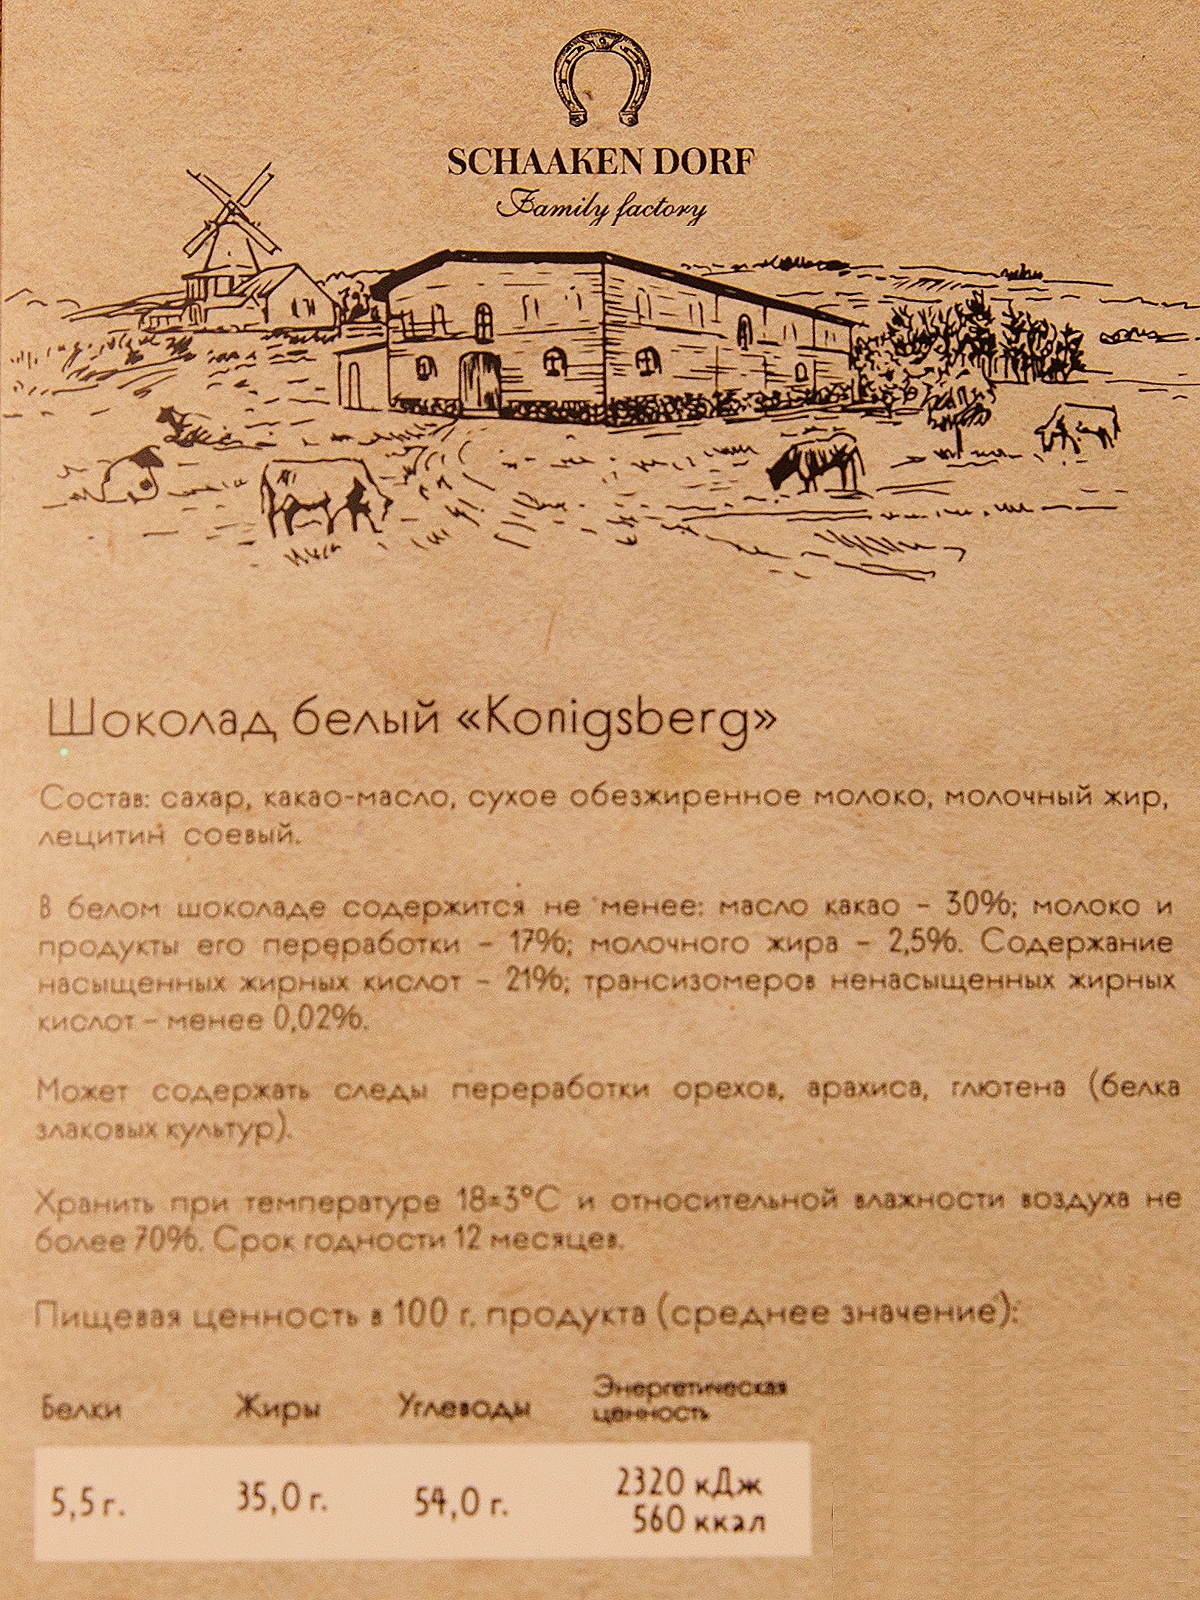 SCHAAKEN DORF
Family factory
Шоколад белый «Konigsberg»
Состав: сахар, какао-масло, сухое обезжиренное молоко, молочный жир,
лецитин соевый.
В белом шоколаде содержится не менее: масло какао – 30%; молоко и
продукты его переработки – 17%; молочного жира – 2,5%. Содержание
насыщенных жирных кислот – 21%; трансизомеров ненасыщенных жирных
кислот – менее 0,02%.
Может содержать следы переработки орехов, арахиса, глютена (белка
злаковых культур).
Хранить при температуре 18±3°С и относительной влажности воздуха не
более 70%. Срок годности 12 месяцев.
Пищевая ценность в 100 г. продукта (среднее значение):
Белки Жиры Углеводы Энергетическая ценность
5,5 г. 35,0 г. 54,0 г. 2320 кДж
560 ккал